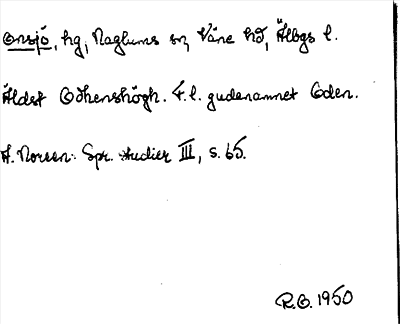 Onsjö, hg, Naglums sn, Väne hd, Älvbgs l.
Äldst Odhenshögh. F.l. gudanamnet Oden.
A. Noreen. Spr. studier III, s. 65.
R.O. 1950